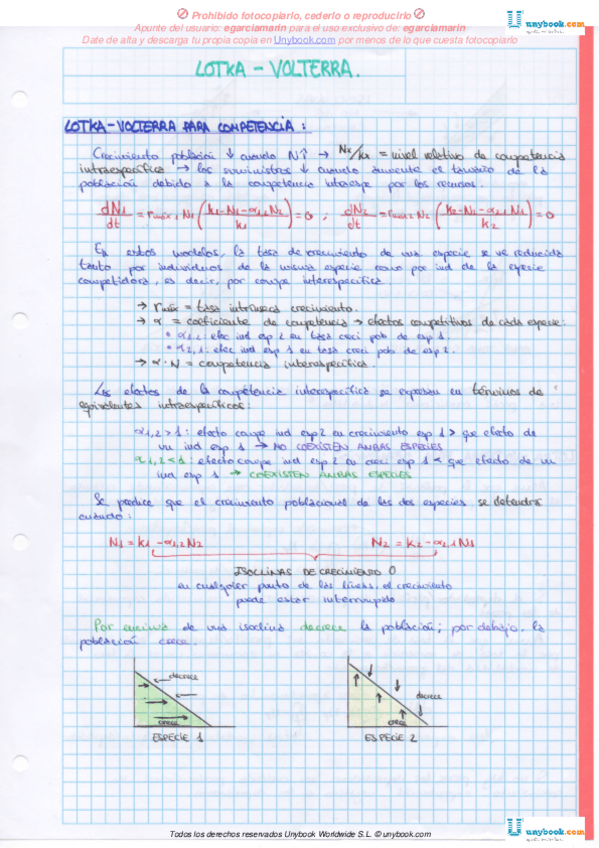 Prohibido fotocopiarlo, cederlo o reproducirlo
Apunte del usuario: egarciamarin para el uso exclusivo de: egarciamarin
Date de alta y descarga tu propia copia en Unybook.com por menos de lo que cuesta fotocopiarlo
unybook.com
LOTKA - VOLTERRA.
LOTKA-VOLTERRA PARA COMPETENCIA:
Crecimiento población ↓ cuando N↑ → Nx/Kx = nivel relativo de competencia
intraespecífica → los suministros ↓ cuando aumenta el tamaño de la
población debido a la competencia interesp por los recursos.
dN1/dt = rmáx1 N1 (K1-N1-α1,2 N2 / K1) = 0 ; dN2/dt = rmáx2 N2 (K2-N2-α2,1 N1 / K2) = 0
En estos modelos, la tasa de crecimiento de una especie se ve reducida
tanto por individuos de la misma especie como por ind de la especie
competidora, es decir, por compe interespecífica.
→ rmáx = tasa intrínseca crecimiento.
→ α = coeficiente de competencia → efectos competitivos de cada especie:
• α1,2: efec ind esp 2 en tasa creci pob de esp 1.
• α2,1: efec ind esp 1 en tasa creci pob de esp 2.
→ α·N = competencia interespecífica.
Los efectos de la competencia interespecífica se expresan en términos de
equivalentes intraespecíficos:
α1,2 > 1: efecto compe ind esp2 en crecimiento esp 1 > que efecto de
un ind esp 1 → NO COEXISTEN AMBAS ESPECIES
α1,2 < 1: efecto compe ind esp 2 en creci esp 1 < que efecto de un
ind esp 1 → COEXISTEN AMBAS ESPECIES
Se predice que el crecimiento poblacional de las dos especies se detendrá
cuando:
N1 = K1 - α1,2 N2 N2 = K2 - α2,1 N1
ISOCLINAS DE CRECIMIENTO 0
en cualquier punto de las líneas, el crecimiento
puede estar interrumpido
Por encima de una isoclina decrece la población; por debajo, la
población crece.
decrece
decrece
crece
crece
ESPECIE 1 ESPECIE 2
Todos los derechos reservados Unybook Worldwide S.L. © unybook.com
unybook.com